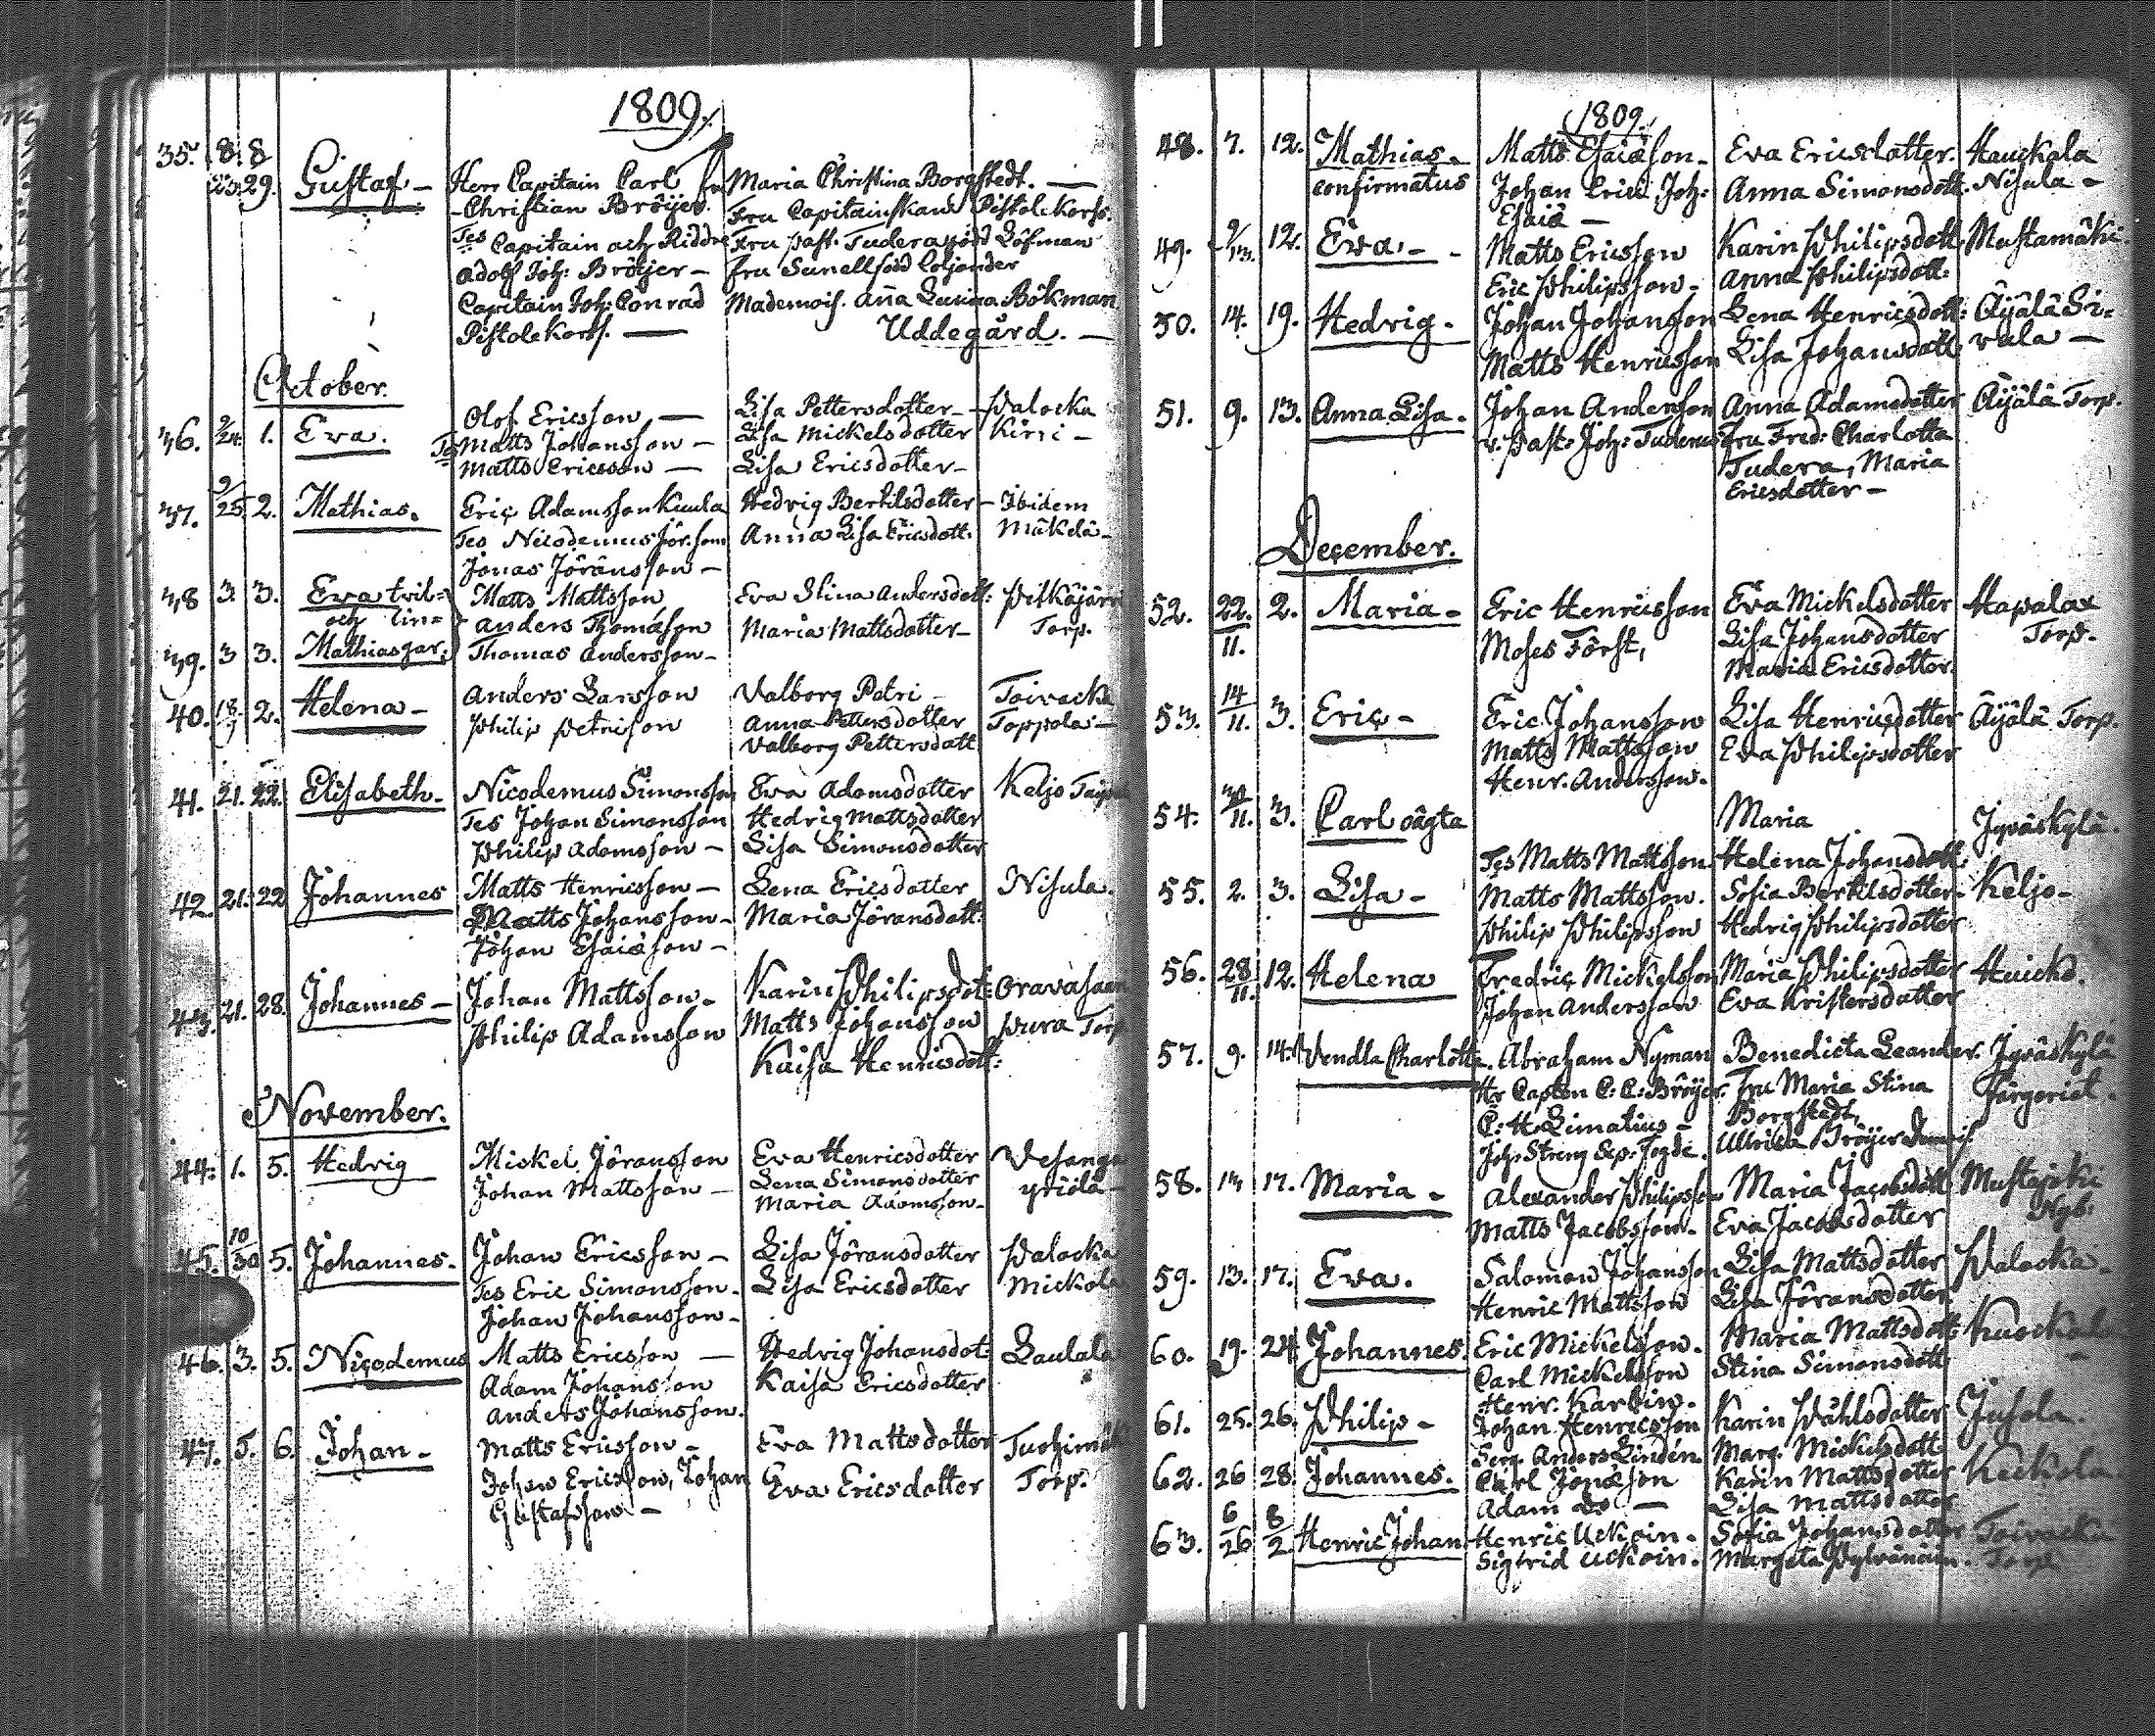 1809.
35. 8. 8
23. 29. Gustaf - Herr Capitain Carl Maria Christina Borgstedt. -
Christian Bröijer. Fru Capitainskan Pistolekors.
Tes Capitain och Riddar Fru past. Tudera född Löfman
Adolf Joh: Bröijer - Fru Sunell född Coljander
Capitain Joh: Conrad Mademois. Anna Lovisa Bökman
Pistolekors. - Uddegård. -
October.
Olof Ericsson - Lisa Pettersdotter - Palocka
36. 9/24. 1. Eva. Tes Matts Johansson - Lisa Mickelsdotter Kirri -
Matts Ericsson - Lisa Ericsdotter -
37. 9/25. 2. Mathias. Eric Adamsson Kuula Hedvig Bertilsdotter - Ibidem
Tes Nicodemus Jör:son Anna Lisa Ericsdott: Mäkelä -
Jonas Jöransson -
38 3. 3. Eva tvil= Matts Mattsson Eva Stina Andersdott: Pitkäjärvi
och lin= Anders Thomasson Maria Mattsdotter - Torp.
39. 3 3. Mathias gar. Thomas Andersson -
40. 18/9 2. Helena - Anders Larsson Valborg Petri - Toivacka
Philip Petrisson Anna Pettersdotter Toppola -
Valborg Pettersdott
41. 21. 22. Elisabeth. Nicodemus Simonsson Eva Adamsdotter Keljo
Tes Johan Simonsson Hedvig Mattsdotter
Philip Adamsson - Lisa Simonsdotter
42. 21. 22 Johannes Matts Henricsson - Lena Ericsdotter Nisula.
Matts Johansson - Maria Jöransdott:
Johan Esaiæson -
43. 21. 28. Johannes - Johan Mattsson - Karin Philipsdott: Oravasaari
Philip Adamsson Matts Johansson Pura Torp
Kaisa Henricsdott:
November.
44. 1. 5. Hedvig Mickel Jöransson Eva Henricsdotter Vesanga
Johan Mattsson - Lena Simonsdotter
Maria Adamsson -
45. 10/30 5. Johannes. Johan Ericsson - Lisa Jöransdotter Palocka
Tes Eric Simonsson. Lisa Ericsdotter Mickola
Johan Johansson -
46. 3. 5. Nicodemus Matts Ericsson - Hedvig Johansdot: Laulala
Adam Johansson Kaisa Ericsdotter
Anders Johansson.
47. 5. 6. Johan - Matts Ericsson - Eva Mattsdotter
Johan Ericsson, Johan Eva Ericsdotter Torp.
Gustafsson -
1809.
48. 7. 12. Mathias. Matts Esaiæson - Eva Ericsdotter. Hauckala
confirmatus Johan Eric Joh: Anna Simonsdott. Nisula -
Esaiæ -
49. 9/13. 12. Eva. - Matts Ericsson Karin Philipsdott Mustamäki.
Eric Philipsson - Anna Philipsdott:
50. 14. 19. Hedvig. Johan Johansson Lena Henricsdott: Äijälä Si=
Matts Henricsson Lisa Johansdott vula -
51. 9. 13. Anna Lisa. Johan Andersson Anna Adamsdotter Äijälä Torp.
v. Past: Joh: Tuderus Fru Fred: Charlotta
Tudera, Maria
Ericsdotter -
December.
52. 22./11. 2. Maria - Eric Henricsson Eva Mickelsdotter Hapala
Moses Först, Lisa Johansdotter Torp.
Maria Ericsdotter.
53. 14/11. 3. Eric - Eric Johansson Lisa Henricsdotter Äijälä Torp.
Matts Mattsson Eva Philipsdotter
Henr. Andersson.
54. 30/11. 3. Carl oägta Maria Jyväskylä.
Tes Matts Mattsson. Helena Johansdott.
55. 2. 3. Lisa - Matts Mattsson. Sofia Bertilsdotter - Keljo -
Philip Philipsson Hedvig Philipsdotter
56. 28/11. 12. Helena Fredric Mickelsson Maria Philipsdotter
Johan Andersson Eva Kristersdotter
57. 9. 14. Vendla Charlotta. Abraham Nyman Benedicta Leander. Jyväskylä
Hr Capten C: C: Bröijer. Fru Maria Stina Färgeriet.
C: H: Limatius - Borgstedt,
Joh: Streng Exp: Fogde. Ullrica Bröijer
58. 13 17. Maria - Alexander Philipsson Maria Jacobsdott
Matts Jacobsson. Eva Jacobsdotter Nyb.
59. 13. 17. Eva. Salomon Johansson Lisa Mattsdotter Palocka.
Henric Mattsson Lisa Jöransdotter
60. 19. 24 Johannes. Eric Mickelsson. Maria Mattsdott:
Carl Mickelsson Stina Simonsdott
Henr. Karvin.
61. 25. 26. Philip - Johan Henricsson Karin Påhlsdotter Jusola.
Serg. Anders Lindén Marg. Mickelsdott
62. 26 28. Johannes. Carl Jonæson Karin Mattsdotter Keckola
Adam do - Lisa Mattsdotter
63. 6/26 8/2 Henric Johan Henric Uckoin. Sofia Johansdotter Toivacka
Sigfrid Uckoin. Margeta Pylvänäin. Torp